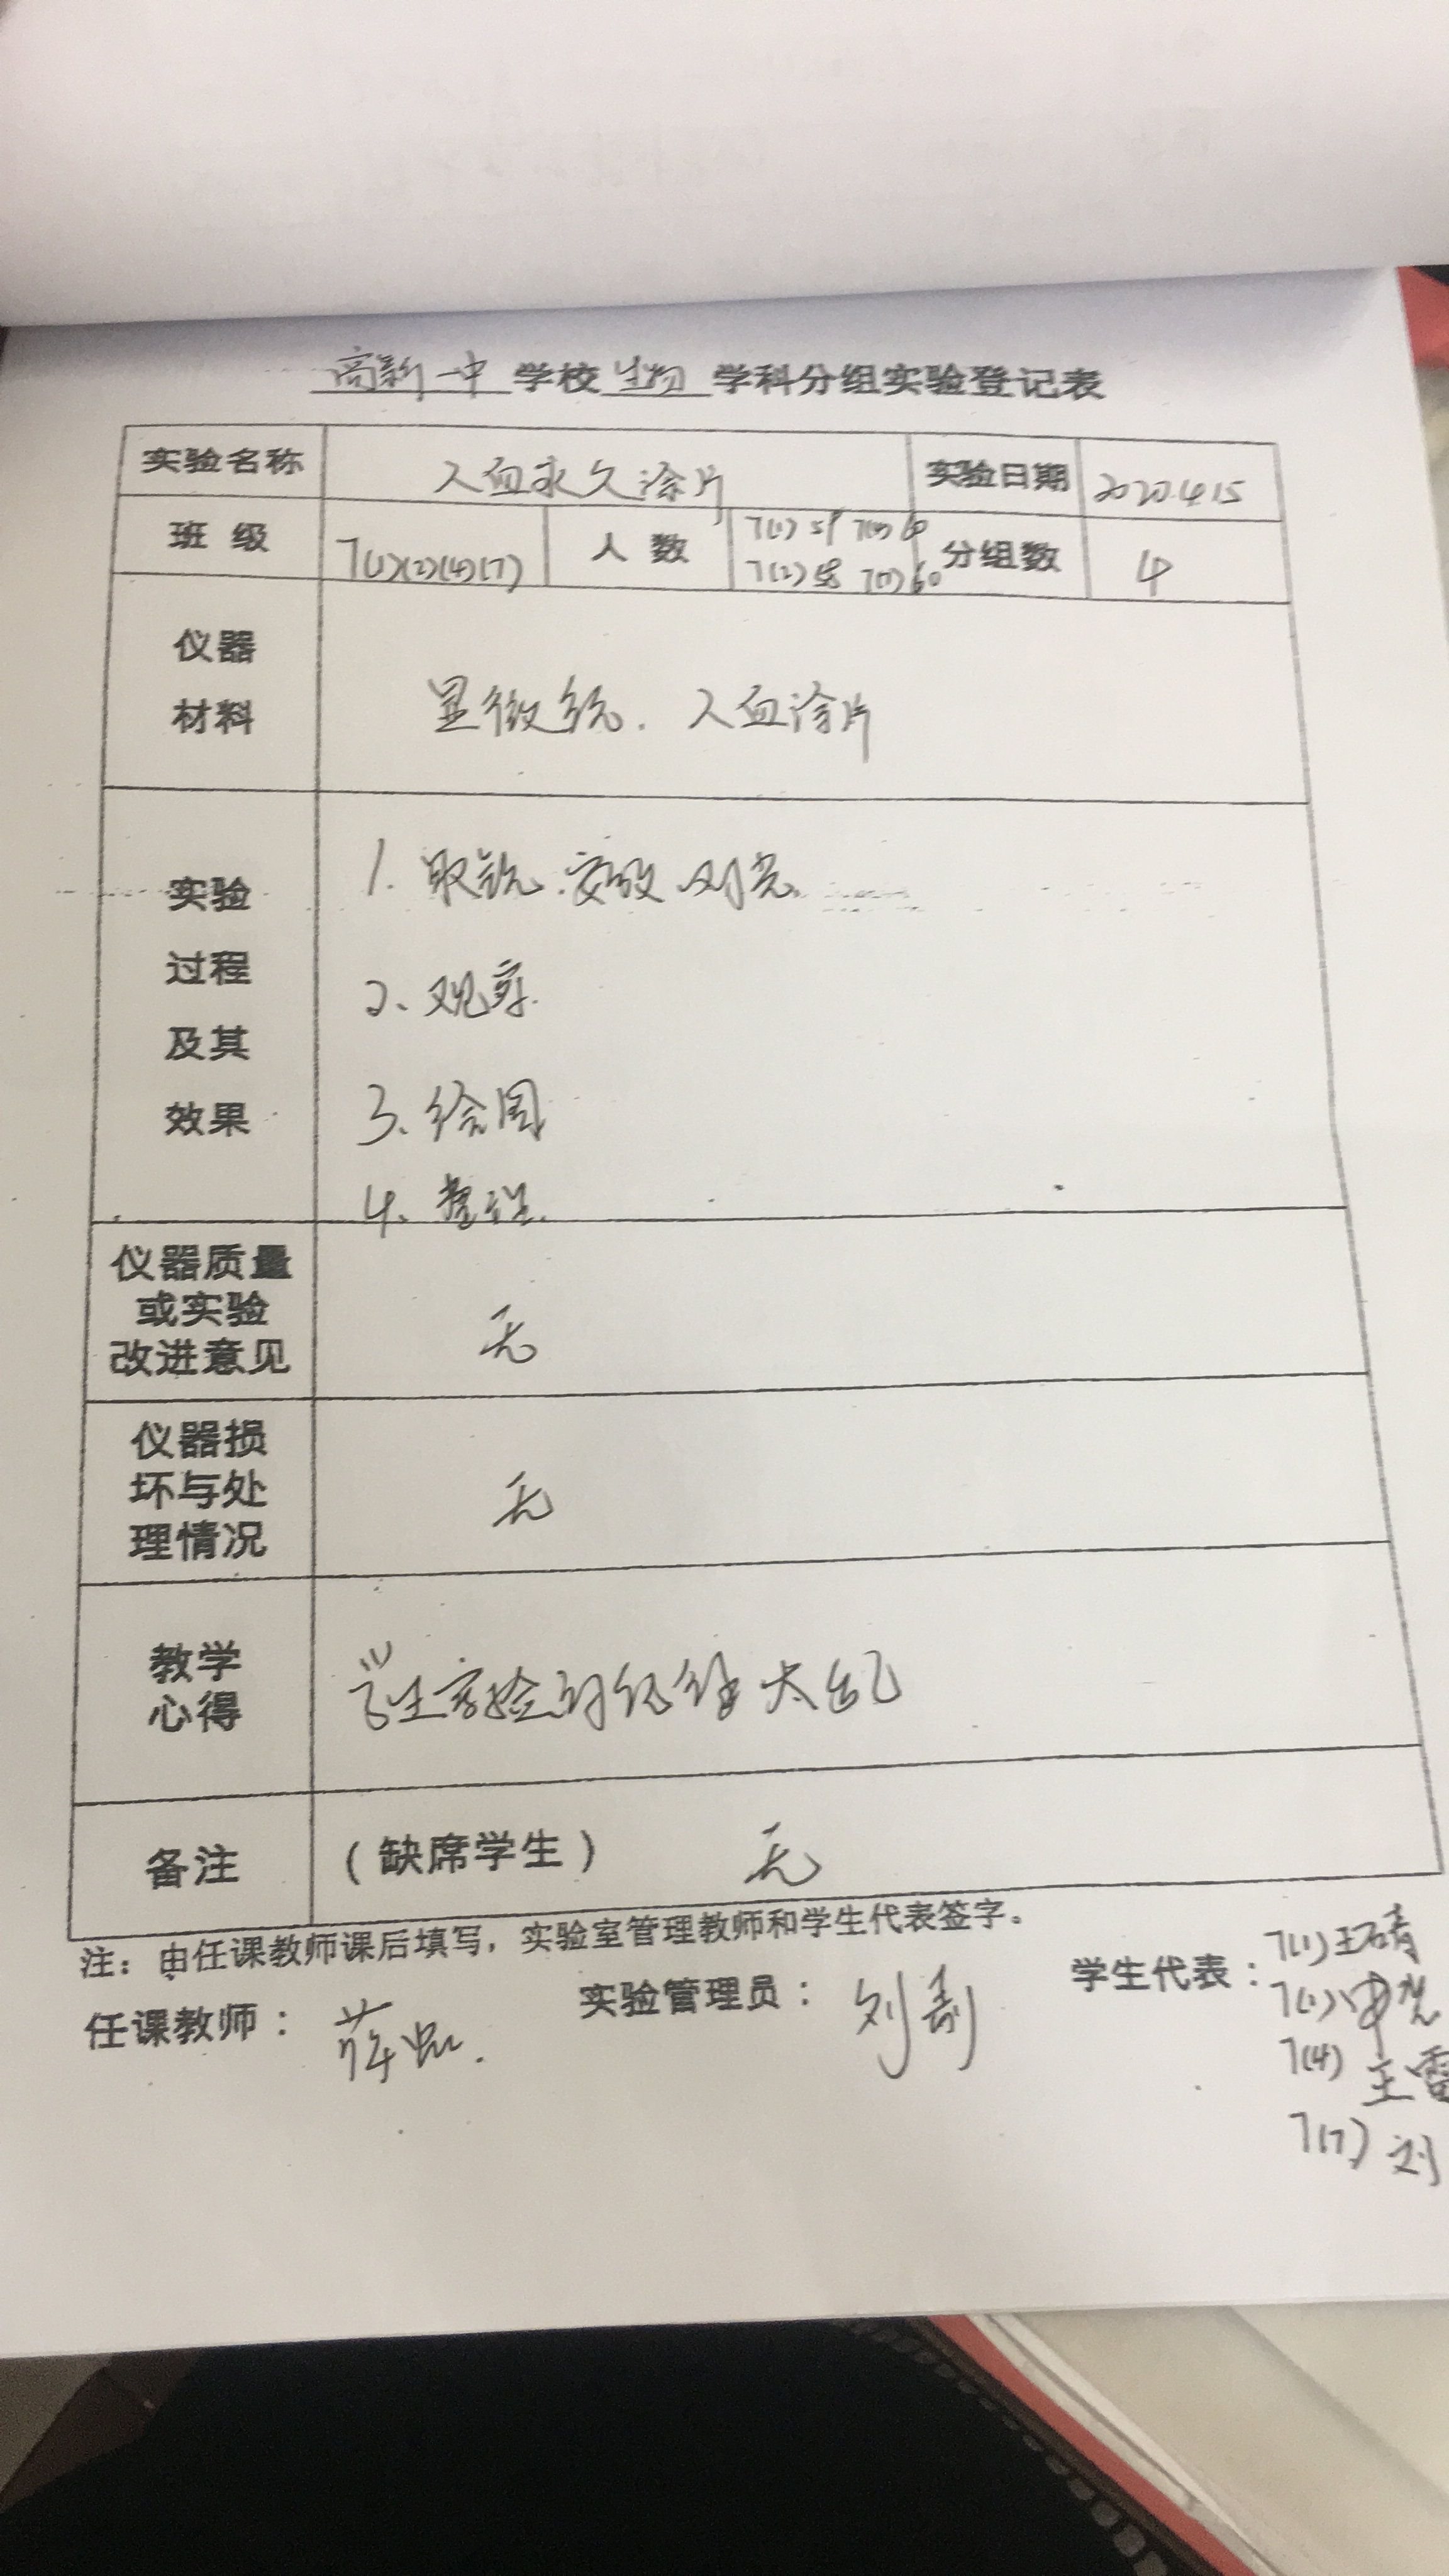 高新一中学校生物学科分组实验登记表
实验名称 人血永久涂片 实验日期 2020.4.15
班级 7(1)(2)(4)(7) 人数 7(1)59 7(4)60 7(2)58 7(7)60 分组数 4
仪器
材料
显微镜. 人血涂片
实验
过程
及其
效果
1. 取镜.安放 对光
2、观察.
3、绘图
4、整理.
仪器质量
或实验
改进意见
无
仪器损
坏与处
理情况
无
教学
心得
学生实验时纪律太乱
备注 (缺席学生) 无
注：由任课教师课后填写，实验室管理教师和学生代表签字。
任课教师： 实验管理员： 刘 学生代表：
7(1)王
7(4) 王
7(7) 刘